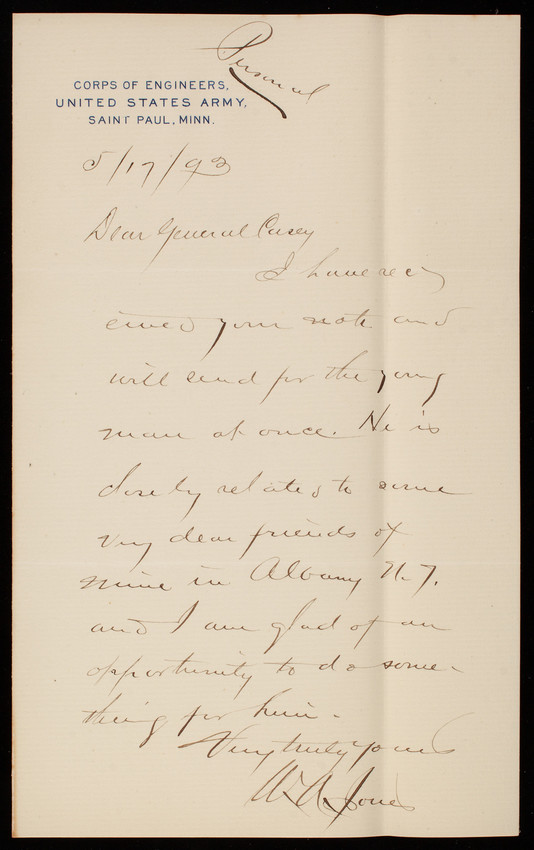 Personal
CORPS OF ENGINEERS,
UNITED STATES ARMY,
SAINT PAUL, MINN.
5/17/93
Dear General Casey
I have rec
eived your note and
will send for the young
man at once. He is
closely related to some
very dear friends of
mine in Albany N.Y.
and I am glad of an
opportunity to do some-
thing for him.
Very truly yours
W. A. Jones